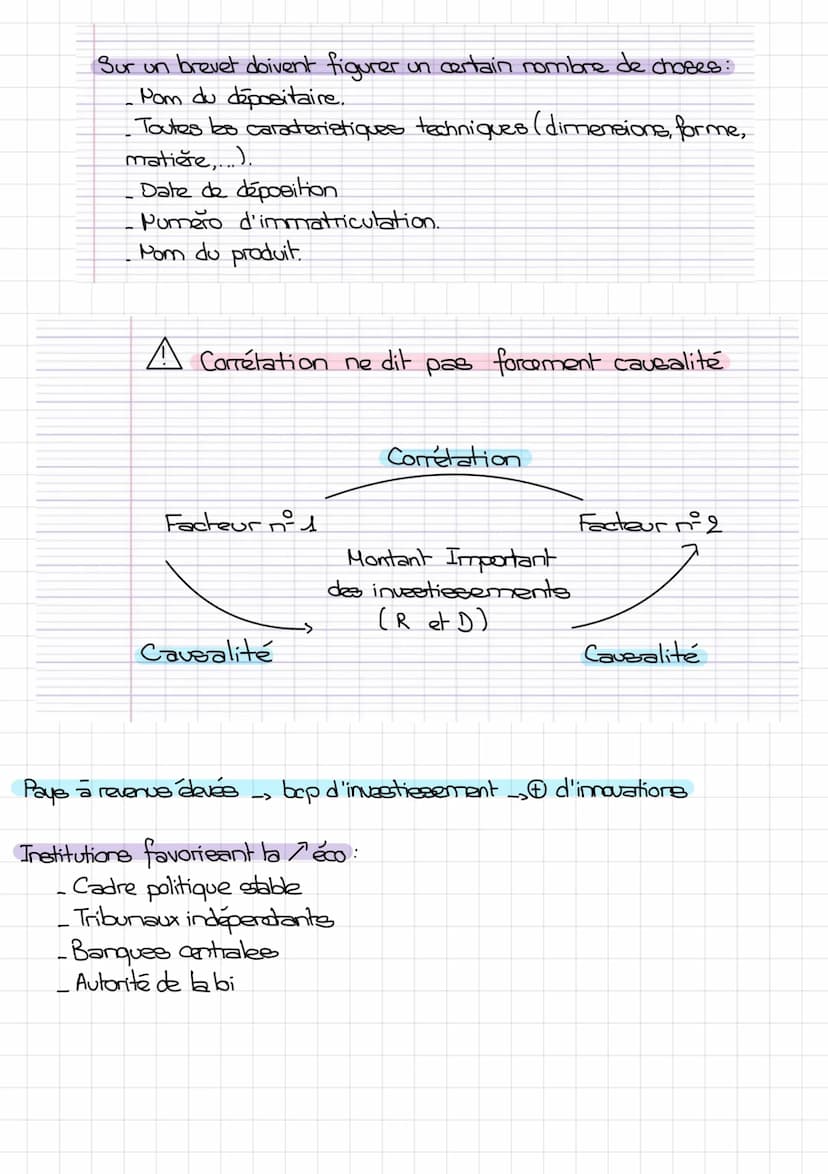 Sur un brevet doivent figurer un certain nombre de choses :
- Nom du dépositaire.
- Toutes les caractéristiques techniques (dimensions, forme,
matière,...).
- Date de déposition
- Numéro d'immatriculation.
- Nom du produit.
⚠ Corrélation ne dit pas forcement causalité
Corrélation
Facteur n° 1
Facteur n° 2
Montant Important
des investissements
( R et D )
Causalité
Causalité
Pays à revenus élevés → bcp d'investissement → ⊕ d'innovations
Institutions favorisant la ↗ éco :
- Cadre politique stable
- Tribunaux indépendants
- Banques centrales
- Autorité de la loi